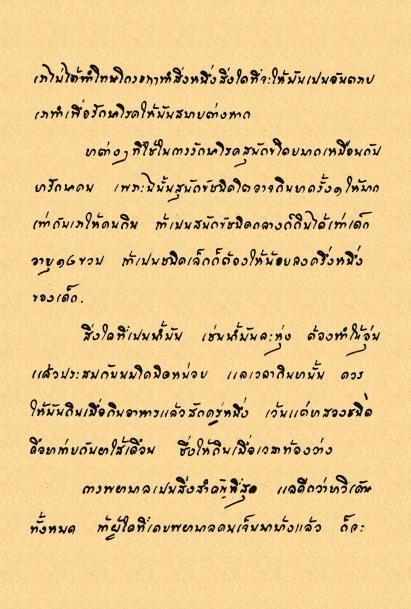 เราไม่ได้ทำโทษใครอาทำสิ่งหนึ่งสิ่งใดที่จะให้มันเป็นอันตราย
เราทำเพื่อรักษาโรคให้มันสบายต่างหาก
ยาต่างๆที่ใช้ในการรักษาโรคสุนัขก็โดยมากเหมือนกับ
ยารักษาคน เพราะฉะนั้นสุนัขชนิดโตอาจกินยาครั้ง๑ให้มาก
เท่ากับเราให้คนกิน ถ้าเป็นสุนัขชนิดกลางก็กินได้เท่าเด็ก
อายุ๑๔ขวบ ถ้าเป็นชนิดเล็กก็ต้องให้น้อยลงครึ่งหนึ่ง
ของเด็ก.
สิ่งใดที่เป็นน้ำมัน เช่นน้ำมันละหุ่ง ต้องทำให้อุ่น
แล้วประสมกับนมนิดหน่อย แลเวลากินยานั้น ควร
ให้มันกินเมื่อกินอาหารแล้วสักครู่หนึ่ง เว้นแต่ยาสองชนิด
คือยาถ่ายกับยาไส้เดือน ซึ่งให้กินเมื่อเวลาท้องว่าง
การพยาบาลเป็นสิ่งสำคัญที่สุด แลดีกว่ายาวิเศษ
ทั้งหมด ถ้าผู้ใดที่เคยพยาบาลคนเจ็บมาบ้างแล้ว ก็จะ